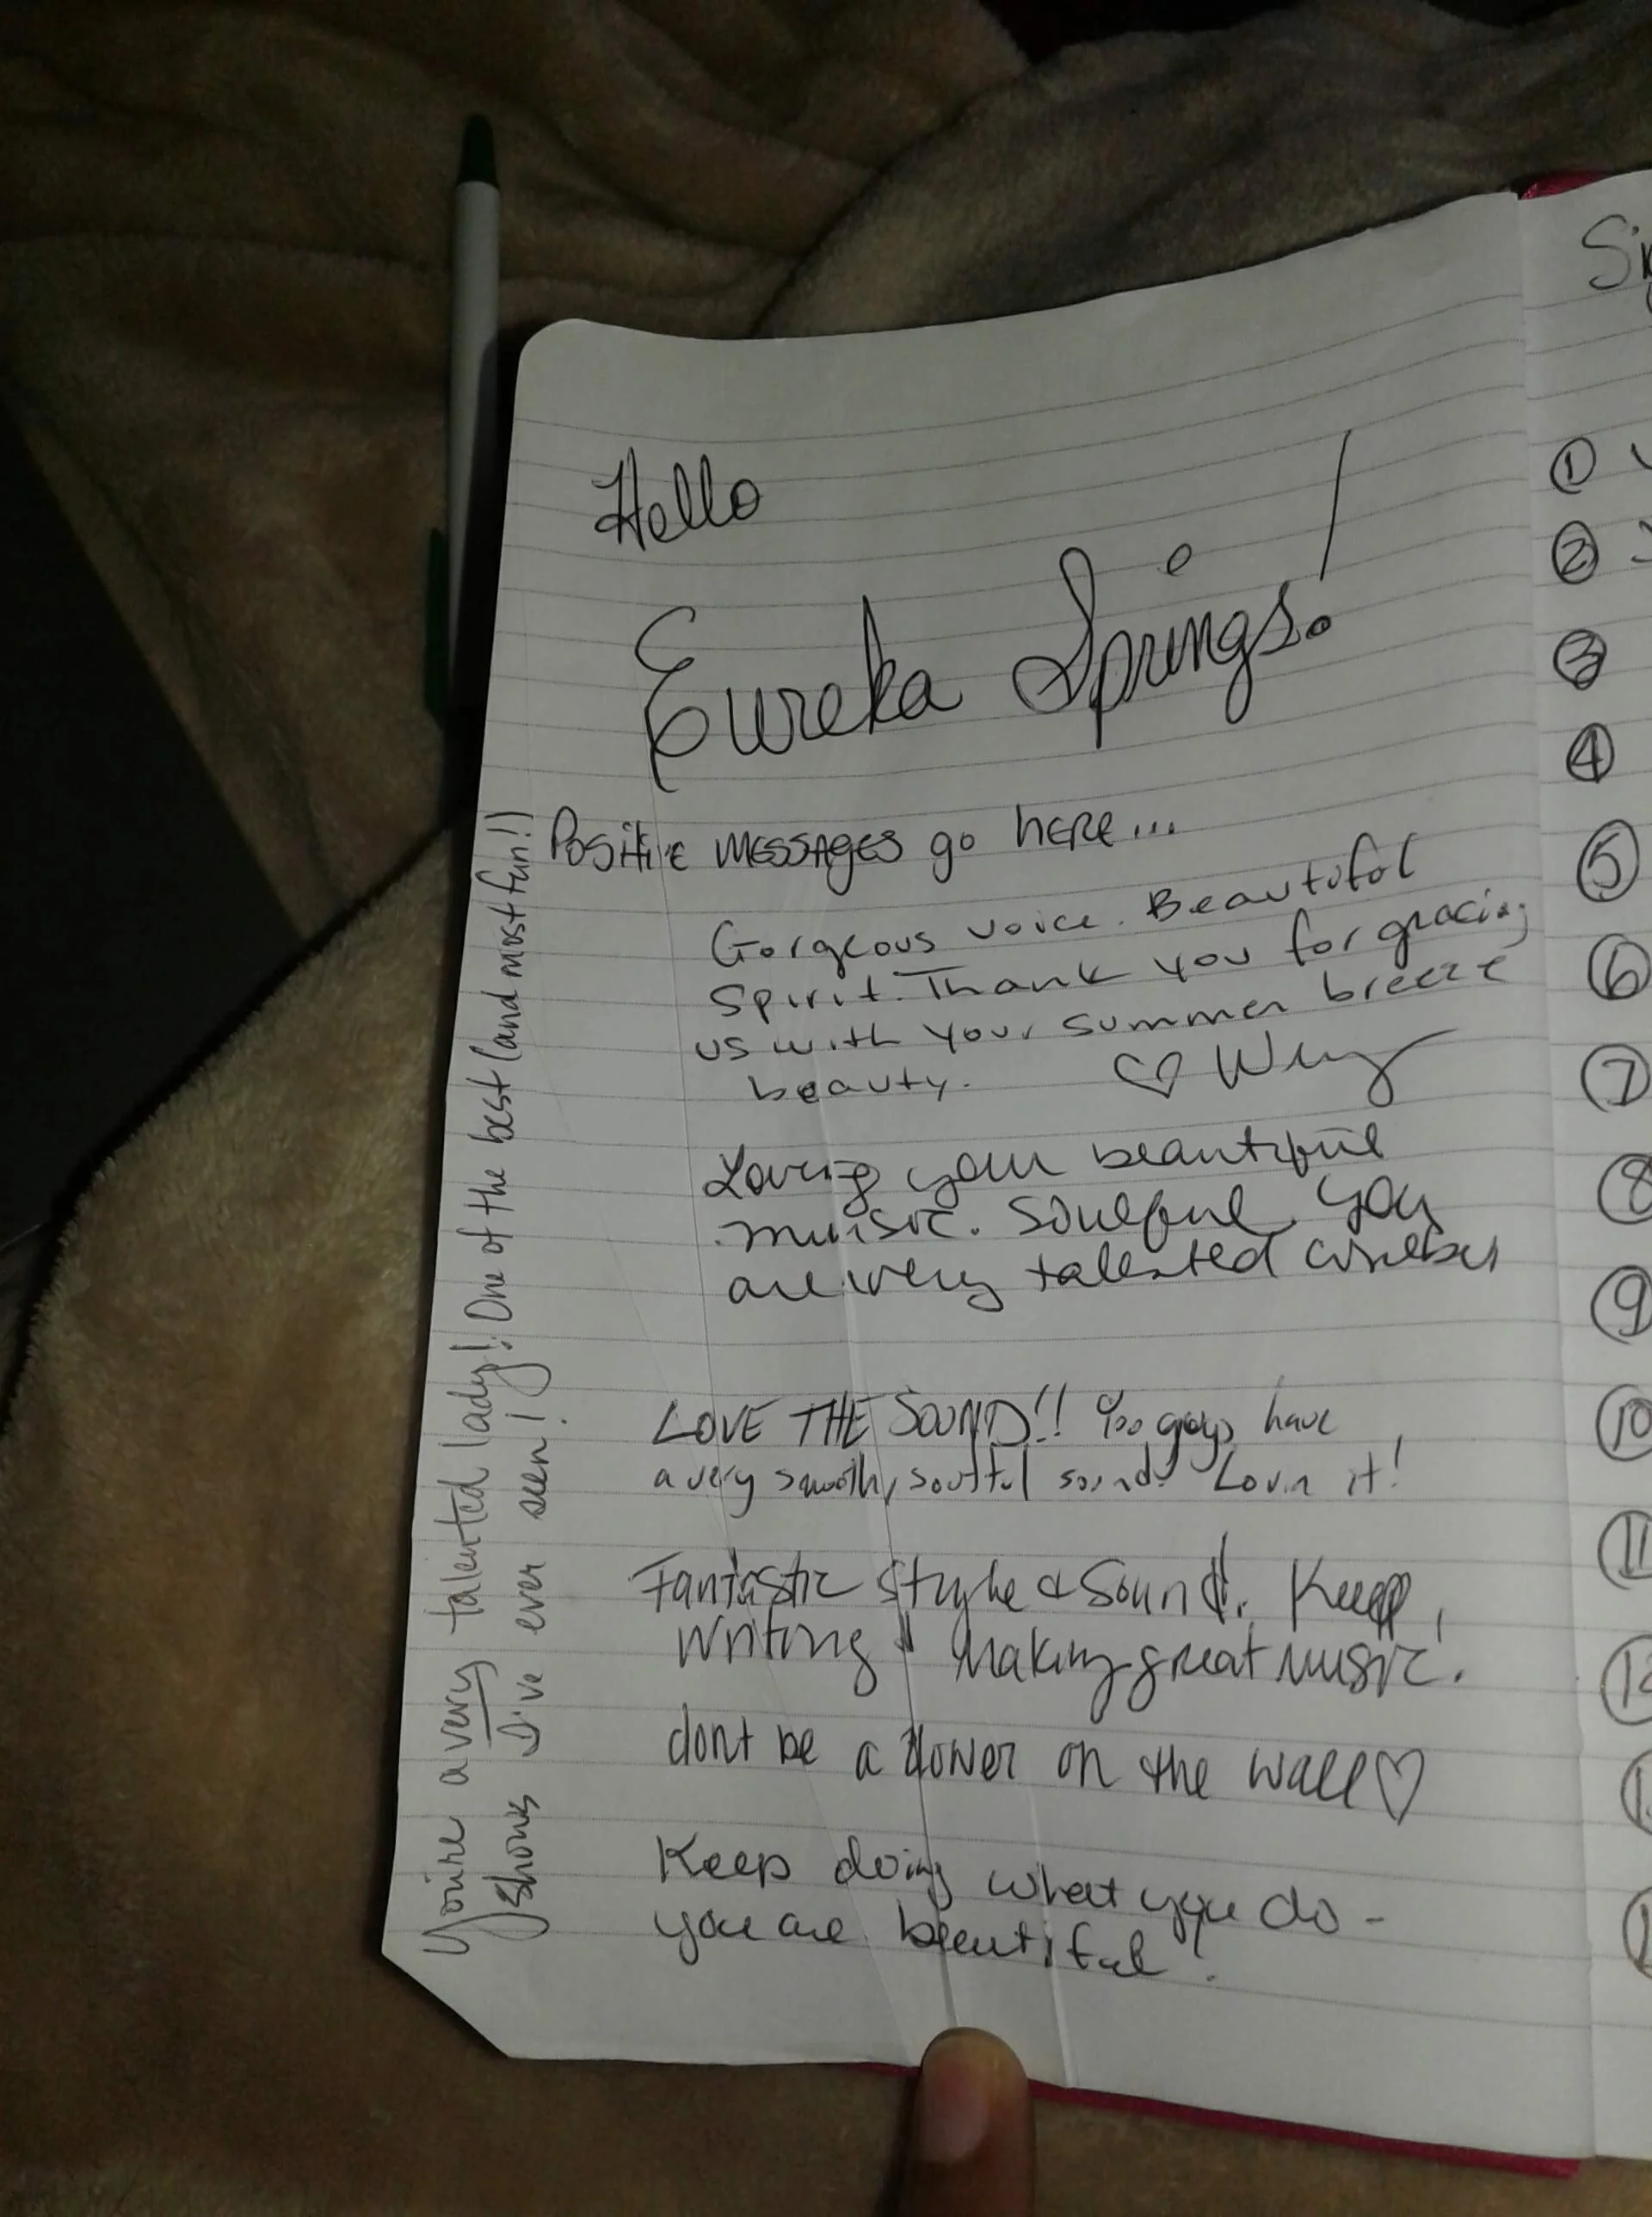 Hello
Eureka Springs!
Positive messages go here...
Gorgeous voice. Beautiful
Spirit. Thank you for gracing
us with your summer breeze
beauty. ♡
Loving your beautiful
music. Soulful you
are very talented
LOVE THE SOUND!! You guys have
a very smooth, soulful sound! Lovin it!
Fantastic Style & Sound. Keep
writing & making great music!
dont be a flower on the wall ♡
Keep doing what you do -
you are beautiful!
You're a very talented lady! One of the best (and most fun!)
shows I've ever seen!
①
②
③
④
⑤
⑥
⑦
⑧
⑨
⑩
⑪